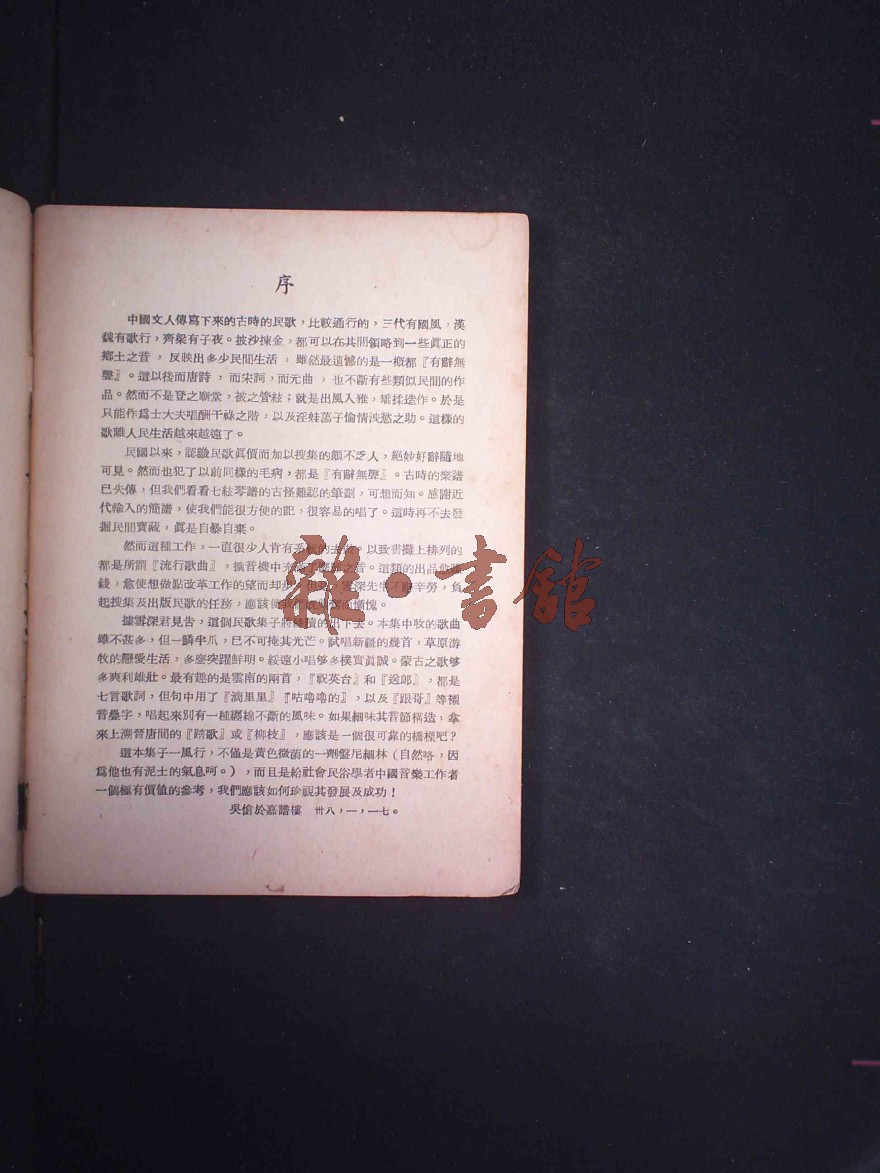 序
中國文人傳寫下來的古時的民歌，比較通行的，三代有國風，漢
魏有歌行，齊梁有子夜。披沙揀金，都可以在其間領略到一些眞正的
鄉土之音，反映出多少民間生活，雖然最遺憾的是一概都『有辭無
聲』。這以後而唐詩，而宋詞，而元曲，也不斷有些類似民間的作
品。然而不是登之廟堂，被之管絃；就是出風入雅，矯揉造作。於是
只能作爲士大夫唱酬干祿之階，以及淫蛙蕩子偷情洩慾之助。這樣的
歌離人民生活越來越遠了。
民國以來，認識民歌眞價而加以搜集的頗不乏人，絕妙好辭隨地
可見。然而也犯了以前同樣的毛病，都是『有辭無聲』。古時的樂譜
已失傳，但我們看看七絃琴譜的古怪難認的筆劃，可想而知。感謝近
代輸入的簡譜，使我們能很方便的記，很容易的唱了。這時再不去發
掘民間寶藏，眞是自暴自棄。
然而這種工作，一直很少人肯有系統的去做。以致書攤上排列的
都是所謂『流行歌曲』，擴音機中充滿了之音。這類的出品愈賺
錢，愈使想做點改革工作的望而却步。但是，雪深先生不辭辛勞，負
起搜集及出版民歌的任務，應該使我們慚愧。
據雪深君見告，這個民歌集子將陸續的出下去。本集中收的歌曲
雖不甚多，但一鱗半爪，已不可掩其光芒。試唱新疆的幾首，草原游
牧的戀愛生活，多麼突躍鮮明。綏遠小唱够多樸實眞誠。蒙古之歌够
多爽利雄壯。最有趣的是雲南的兩首，『祝英台』和『送郎』，都是
七言歌詞，但句中用了『滴里里』『咕嚕嚕的』，以及『跟哥』等襯
音疊字，唱起來別有一種纏綿不斷的風味。如果細味其音節構造，拿
來上溯晉唐間的『踏歌』或『柳枝』，應該是一個很可靠的橋樑吧？
這本集子一風行，不僅是黃色微菌的一劑盤尼細林（自然咯，因
爲他也有泥土的氣息呵。），而且是給社會民俗學者中國音樂工作者
一個極有價値的參考，我們應該如何珍視其發展及成功！
吳傖於嘉譜樓　卅八，一，一七。
雜·書館